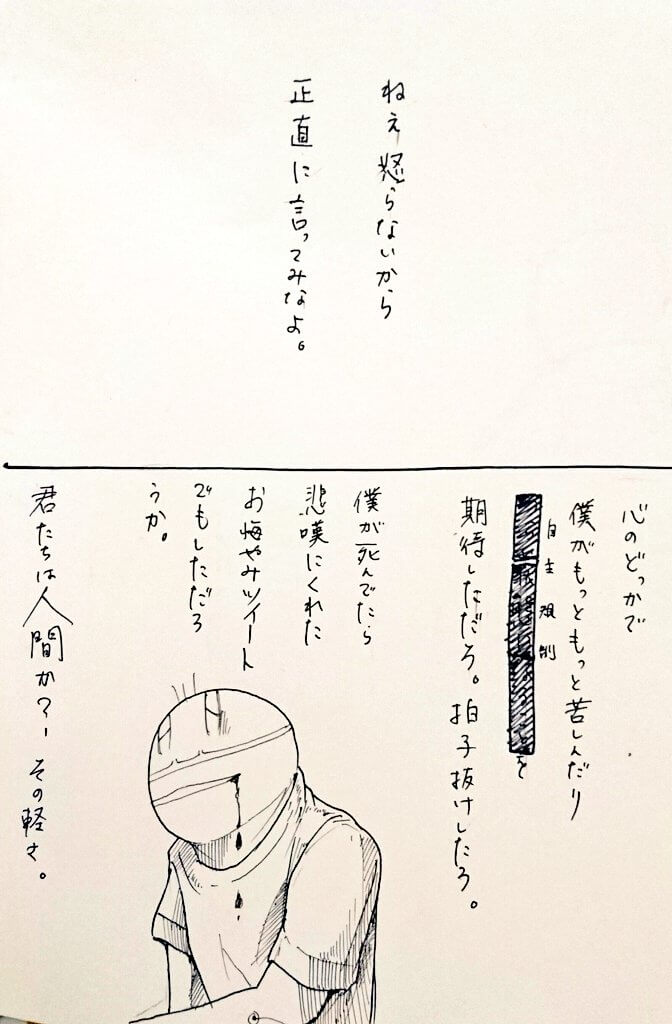 ねぇ怒らないから
正直に言ってみなよ。
心のどっかで
僕がもっともっと苦しんだり
自主規制
を
期待しただろ。拍子抜けしたろ。
僕が死んでたら
悲嘆にくれた
お悔やみツイート
でもしただろ
うか。
君たちは人間か?その軽さ。